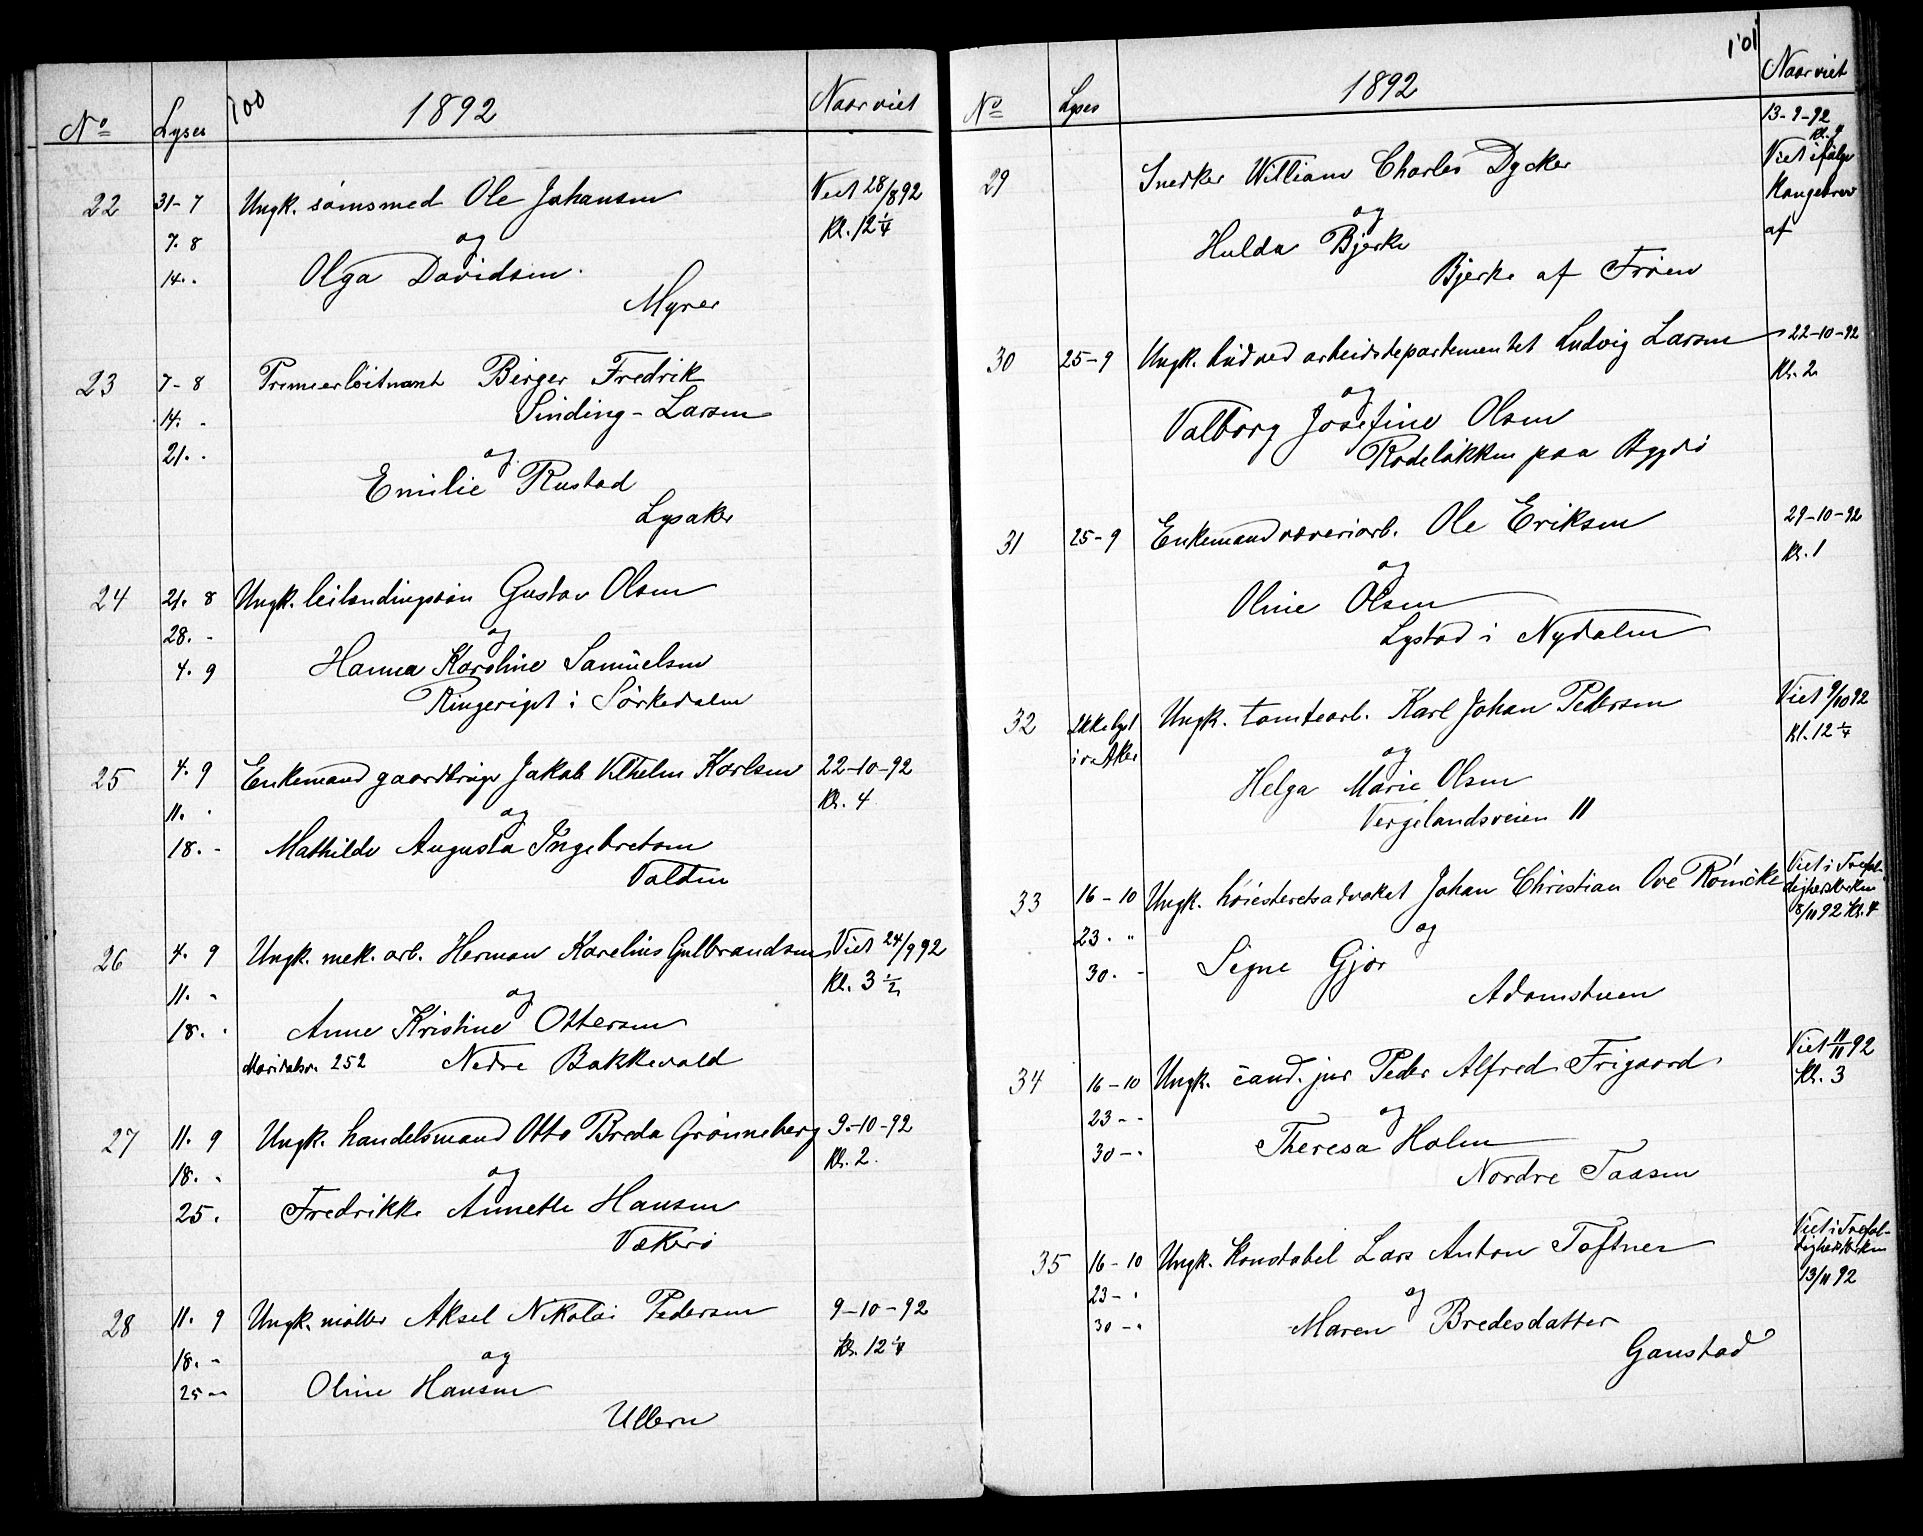 100
1892
No Lyses Naar viet
22 31-7 Ungk. sømsmed Ole Johansen Viet 28/8 92
7. 8 og Kl. 12 1/4
14. - Olga Davidsen.
Myrer
23 7-8 Premierløitnant Birger Fredrik
14. - Sinding-Larsen
21. - og
Emilie Rustad
Lysaker
24 21. 8 Ungk. leilendingssøn Gustav Olsen
28. - og
4. 9 Hanna Karoline Samuelsen
Ringeriget i Sørkedalen
25 4. 9 Enkemand gaardbruger Jakob Vilhelm Karlsen 22-10-92
11. - og Kl. 4
18. - Mathilde Augusta Ingebretsen
Valdsen
26 4. 9 Ungk. mek. arb. Herman Karelius Gulbrandsen Viet 24/9 92
11. - og Kl. 3 1/2
18. - Anne Kristine Ottersen
Maridalsv. 252 Nedre Bakkevold
27 11. 9 Ungk. handelsmand Otto Breda Grønneberg 9-10-92
18. - og Kl. 2.
25. Fredrikke Annette Hansen
Vækerø
28 11. 9 Ungk. møller Aksel Nikolai Pedersen 9-10-92
18. - og Kl. 12 1/4
25 - Oline Hansen
Ullern
101
1892
No Lyses Naar viet
13-9-92
Kl. 4
29 Snedker William Charles Dycker Viet ifølge
og Kongebrev
Hulda Bjerke af
Bjerke af Frøen
30 25-9 Ungk. bud ved arbeidsdepartementet Ludvig Larsen 22-10-92
og Kl. 2
Valborg Josefine Olsen
Rodeløkken paa Bygdø
31 25-9 Enkemand væveriarb. Ole Eriksen 29-10-92
og Kl. 1
Oline Olsen
Lystad i Nydalen
32 Ikke lyst Ungk. tomtearb. Karl Johan Pedersen Viet 9/10 92
i v. Aker og Kl. 12 1/4
Helga Marie Olsen
Vergelandsveien 11
33 16-10 Ungk. høiesteretsadvokat Johan Christian Ove Römcke Viet i Trefol-
dighedskirken
23. " og 8/11 92 Kl. 4
30. - Signe Gjør
Adamstuen
34 16-10 Ungk. cand. jur Peder Alfred Frigaard Viet 11/11 92
23 - - og Kl. 3
30 - - Theresa Holm
Nordre Taasen
35 16-10 Ungk. Konstabel Lars Anton Toftner Viet i Trefol-
dighedskirken
23 - - og 13/11 92
30 - - Maren Bredesdatter
Gaustad